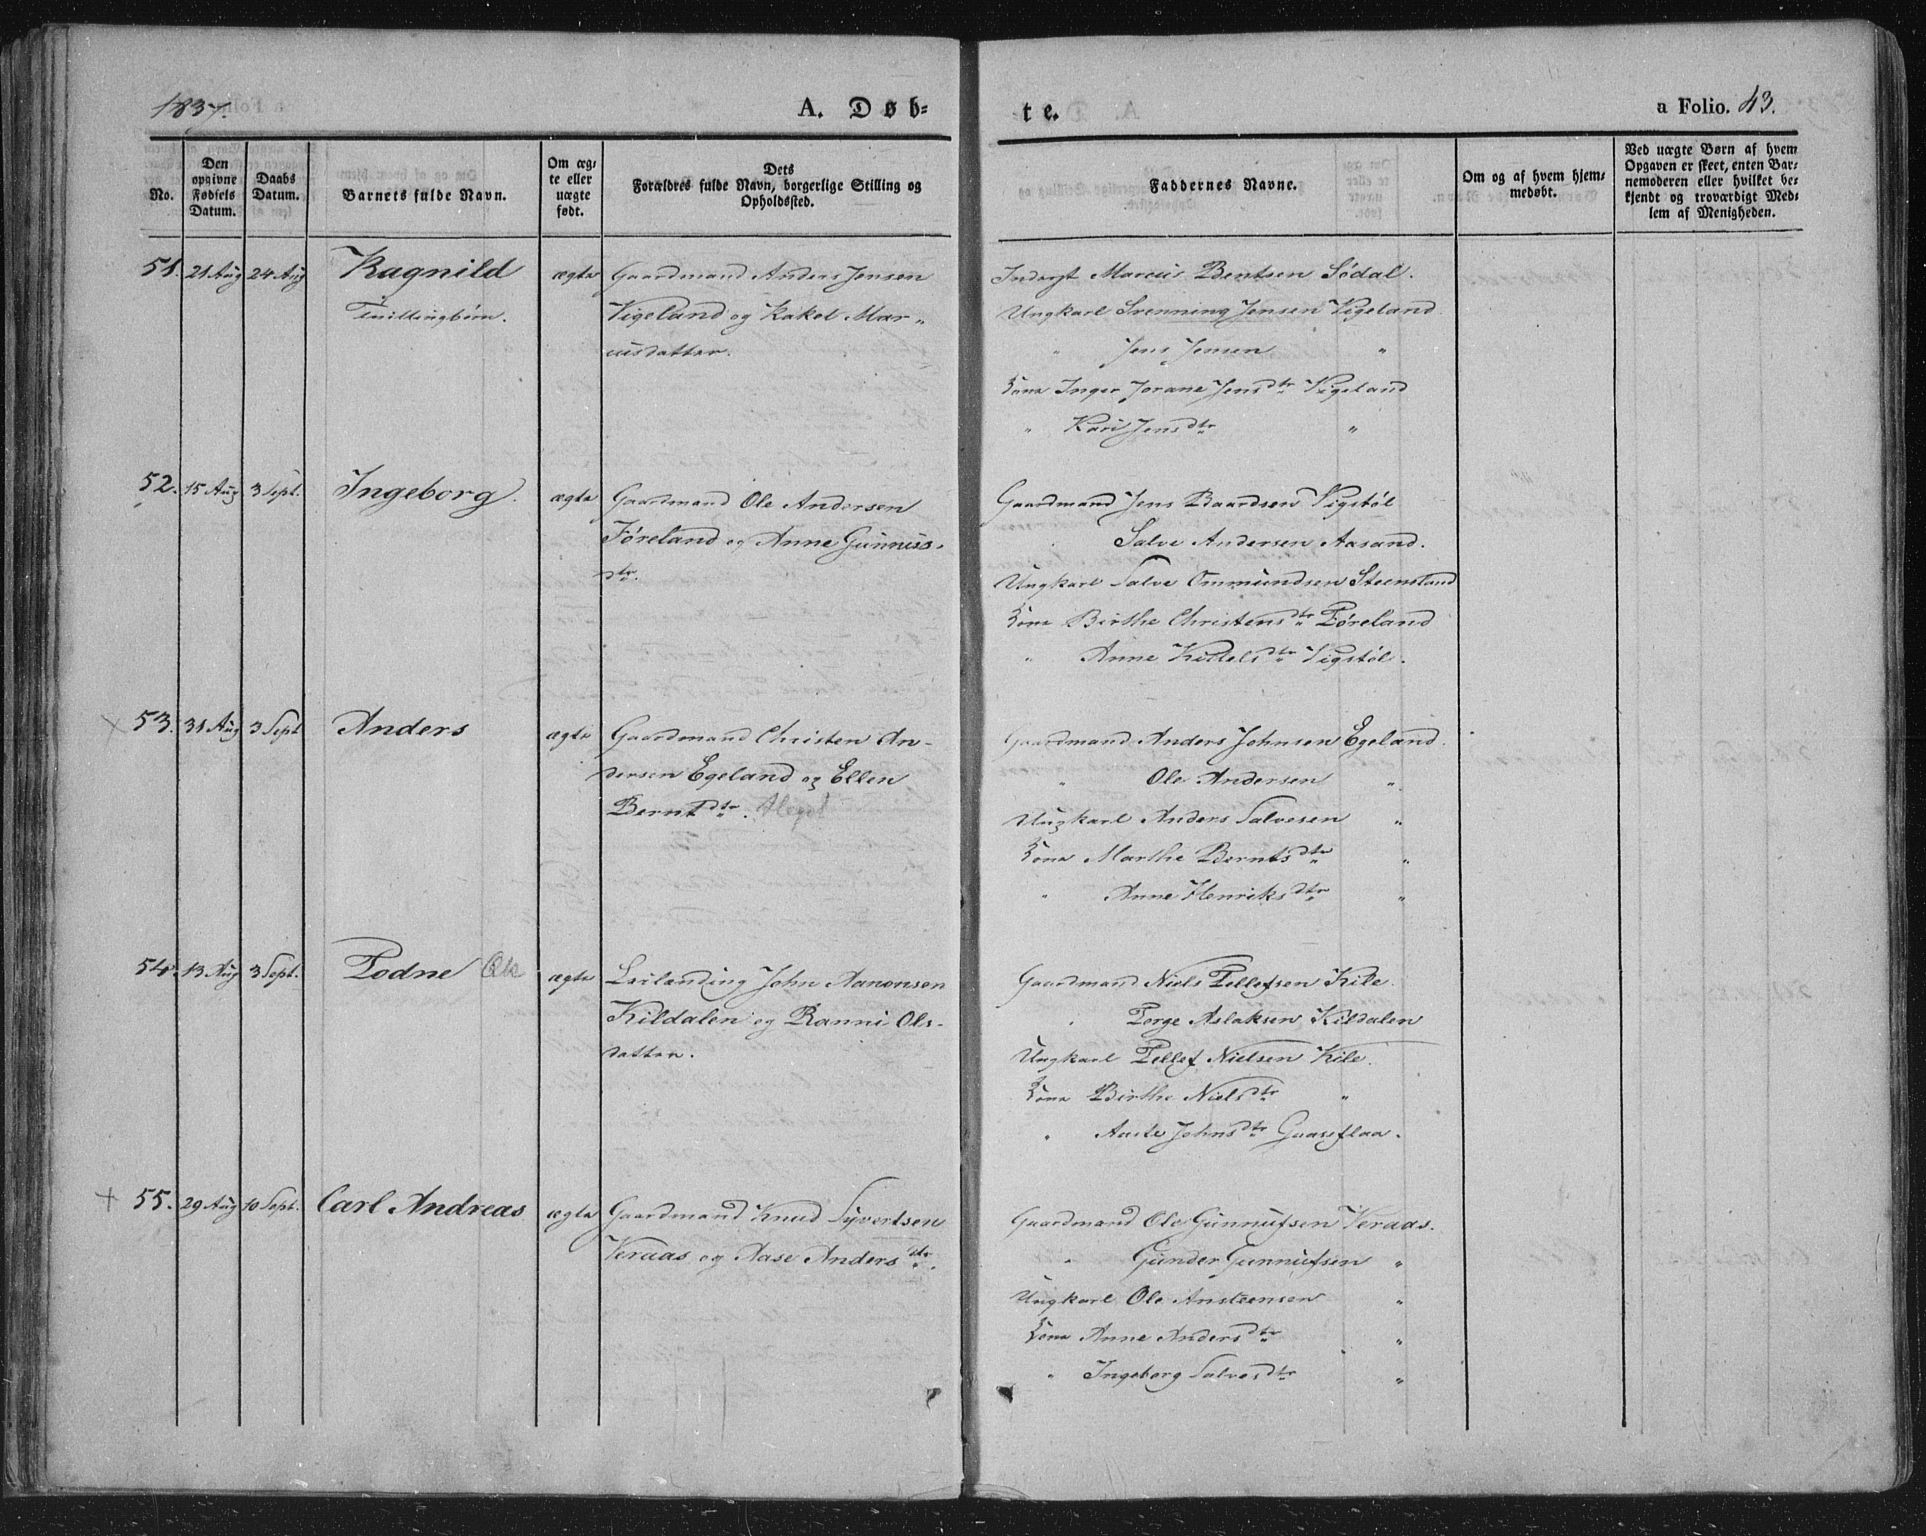 1837.
A. Døb=
te.
a Folio. 43.
No.
Den opgivne Fødsels Datum.
Daabs Datum.
Barnets fulde Navn.
Om ægte eller uægte født.
Dets Forældres fulde Navn, borgerlige Stilling og Opholdssted.
Faddernes Navne.
Om og af hvem hjemmedøbt.
Ved uægte Børn af hvem Opgaven er skeet, enten Barnemoderen eller hvilket bekjendt og troværdigt Medlem af Menigheden.
51. 21 Aug 24 Aug Ragnild ægte Gaardmand Anders Jensen
Tvillingbørn. Vigeland og Rakel Mar„
cusdatter.
Inderst Marcus Bentsen Södal.
Ungkarl Svenning Jensen Vigeland
„ Jens Jensen „
Kone Inger Jorane Jensdtr Vigeland
„ Kari Jensdtr „
52. 15 Aug 3 Sept. Ingeborg. ægte Gaardmand Ole Andersen
Föreland og Anne Gunnus-
dtr.
Gaardmand Jens Baardsen Vigstöl
„ Salve Andersen Aasand.
Ungkarl Salve Ommundsen Steensland
Kone Birthe Christensdtr Föreland
„ Anne Kittelsdtr Vigstöl.
53. 31 Aug 3 Sept Anders ægte Gaardmand Christen An-
dersen Egeland og Ellen
Berntdtr.
Gaardmand Anders Johnsen Egeland.
„ Ole Andersen „
Ungkarl Anders Salvesen „
Kone Marthe Berntsdtr „
„ Anne Henriksdtr „
54. 13 Aug 3 Sept. Todne ægte Leilænding John Aanonsen
Kildalen og Ranni Ols-
datter.
Gaardmand Niels Tellefsen Kile.
„ Torge Aslaksen Kildalen
Ungkarl Tellef Nielsen Kile.
Kone Birthe Nielsdtr „
„ Aaste Johnsdtr Gaaseflaa.
55. 29 Aug 10 Sept. Carl Andreas ægte Gaardmand Knud Syvertsen
Veraas og Aase Andersdtr.
Gaardmand Ole Gunnufsen Veraas.
„ Gunder Gunnufsen „
Ungkarl Ole Ansteensen „
Kone Anne Andersdtr „
„ Ingeborg Salvesdtr „